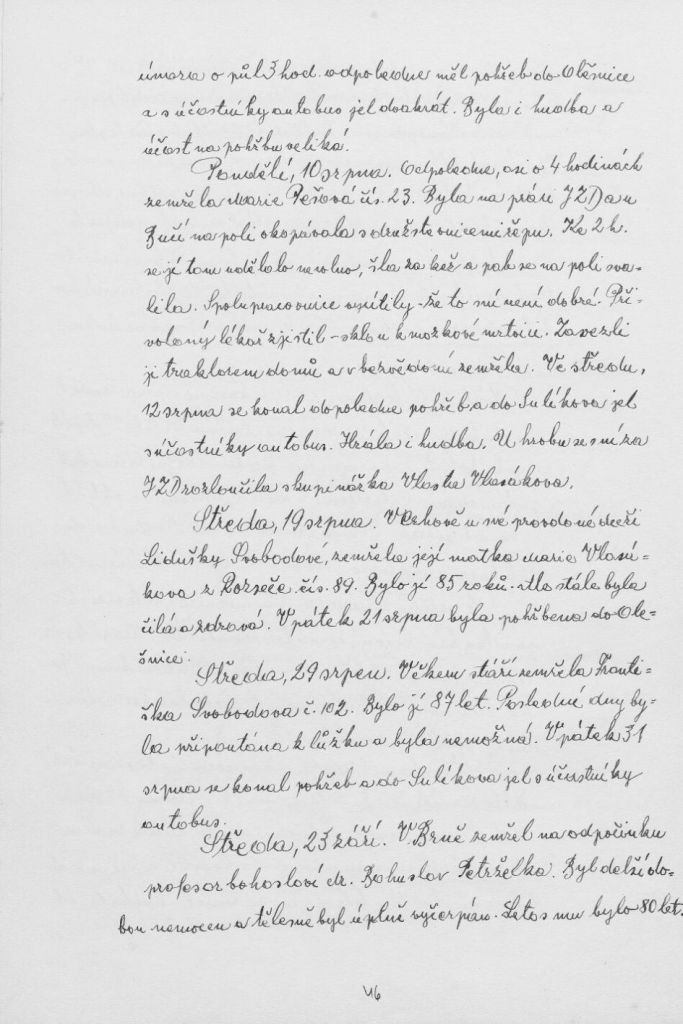 února o půl 3 hod. odpoledne měl pohřeb do Olešnice
a s účastníky autobus jel dvakrát. Byla i hudba a
účast na pohřbu veliká.
Pondělí, 10 srpna. Odpoledne, asi o 4 hodinách
zemřela Marie Pešová čís. 23. Byla na práci JZD a u
Bučí na poli okopávala s družstevnicemi řepu. Ke 2 h.
se jí tam udělalo nevolno, šla za keř a pak se na poli sva-
lila. Spolupracovnice ucítily - že to s ní není dobré. Při-
volaný lékař zjistil - sklon k mozkové mrtvici. Zavezli
ji traktorem domů a v bezvědomí zemřela. Ve středu,
12 srpna se konal dopoledne pohřeb a do Sulíkova jel
s účastníky autobus. Hrála i hudba. U hrobu se s ní za
JZD rozloučila skupinářka Vlasta Vlasákova.
Středa, 19 srpna. V Crhově u své provdané dceři
Lidušky Svobodové, zemřela její matka Marie Vlasá-
kova z Rozseče čís. 89. Bylo jí 85 roků. Ale stále byla
čilá a zdravá. V pátek 21 srpna byla pohřbena do Ole-
šnice.
Středa, 29 srpen. Věkem stáří zemřela Franti-
ška Svobodova č. 102. Bylo jí 87 let. Poslední dny by-
la připoutána k lůžku a byla nemožná. V pátek 31
srpna se konal pohřeb a do Sulíkova jel s účastníky
autobus.
Středa, 23 září. V Brně zemřel na odpočinku
profesor bohosloví dr. Bohuslav Petrželka. Byl delší do-
bou nemocen a tělesně byl úplně vyčerpán. Letos mu bylo 80 let.
46